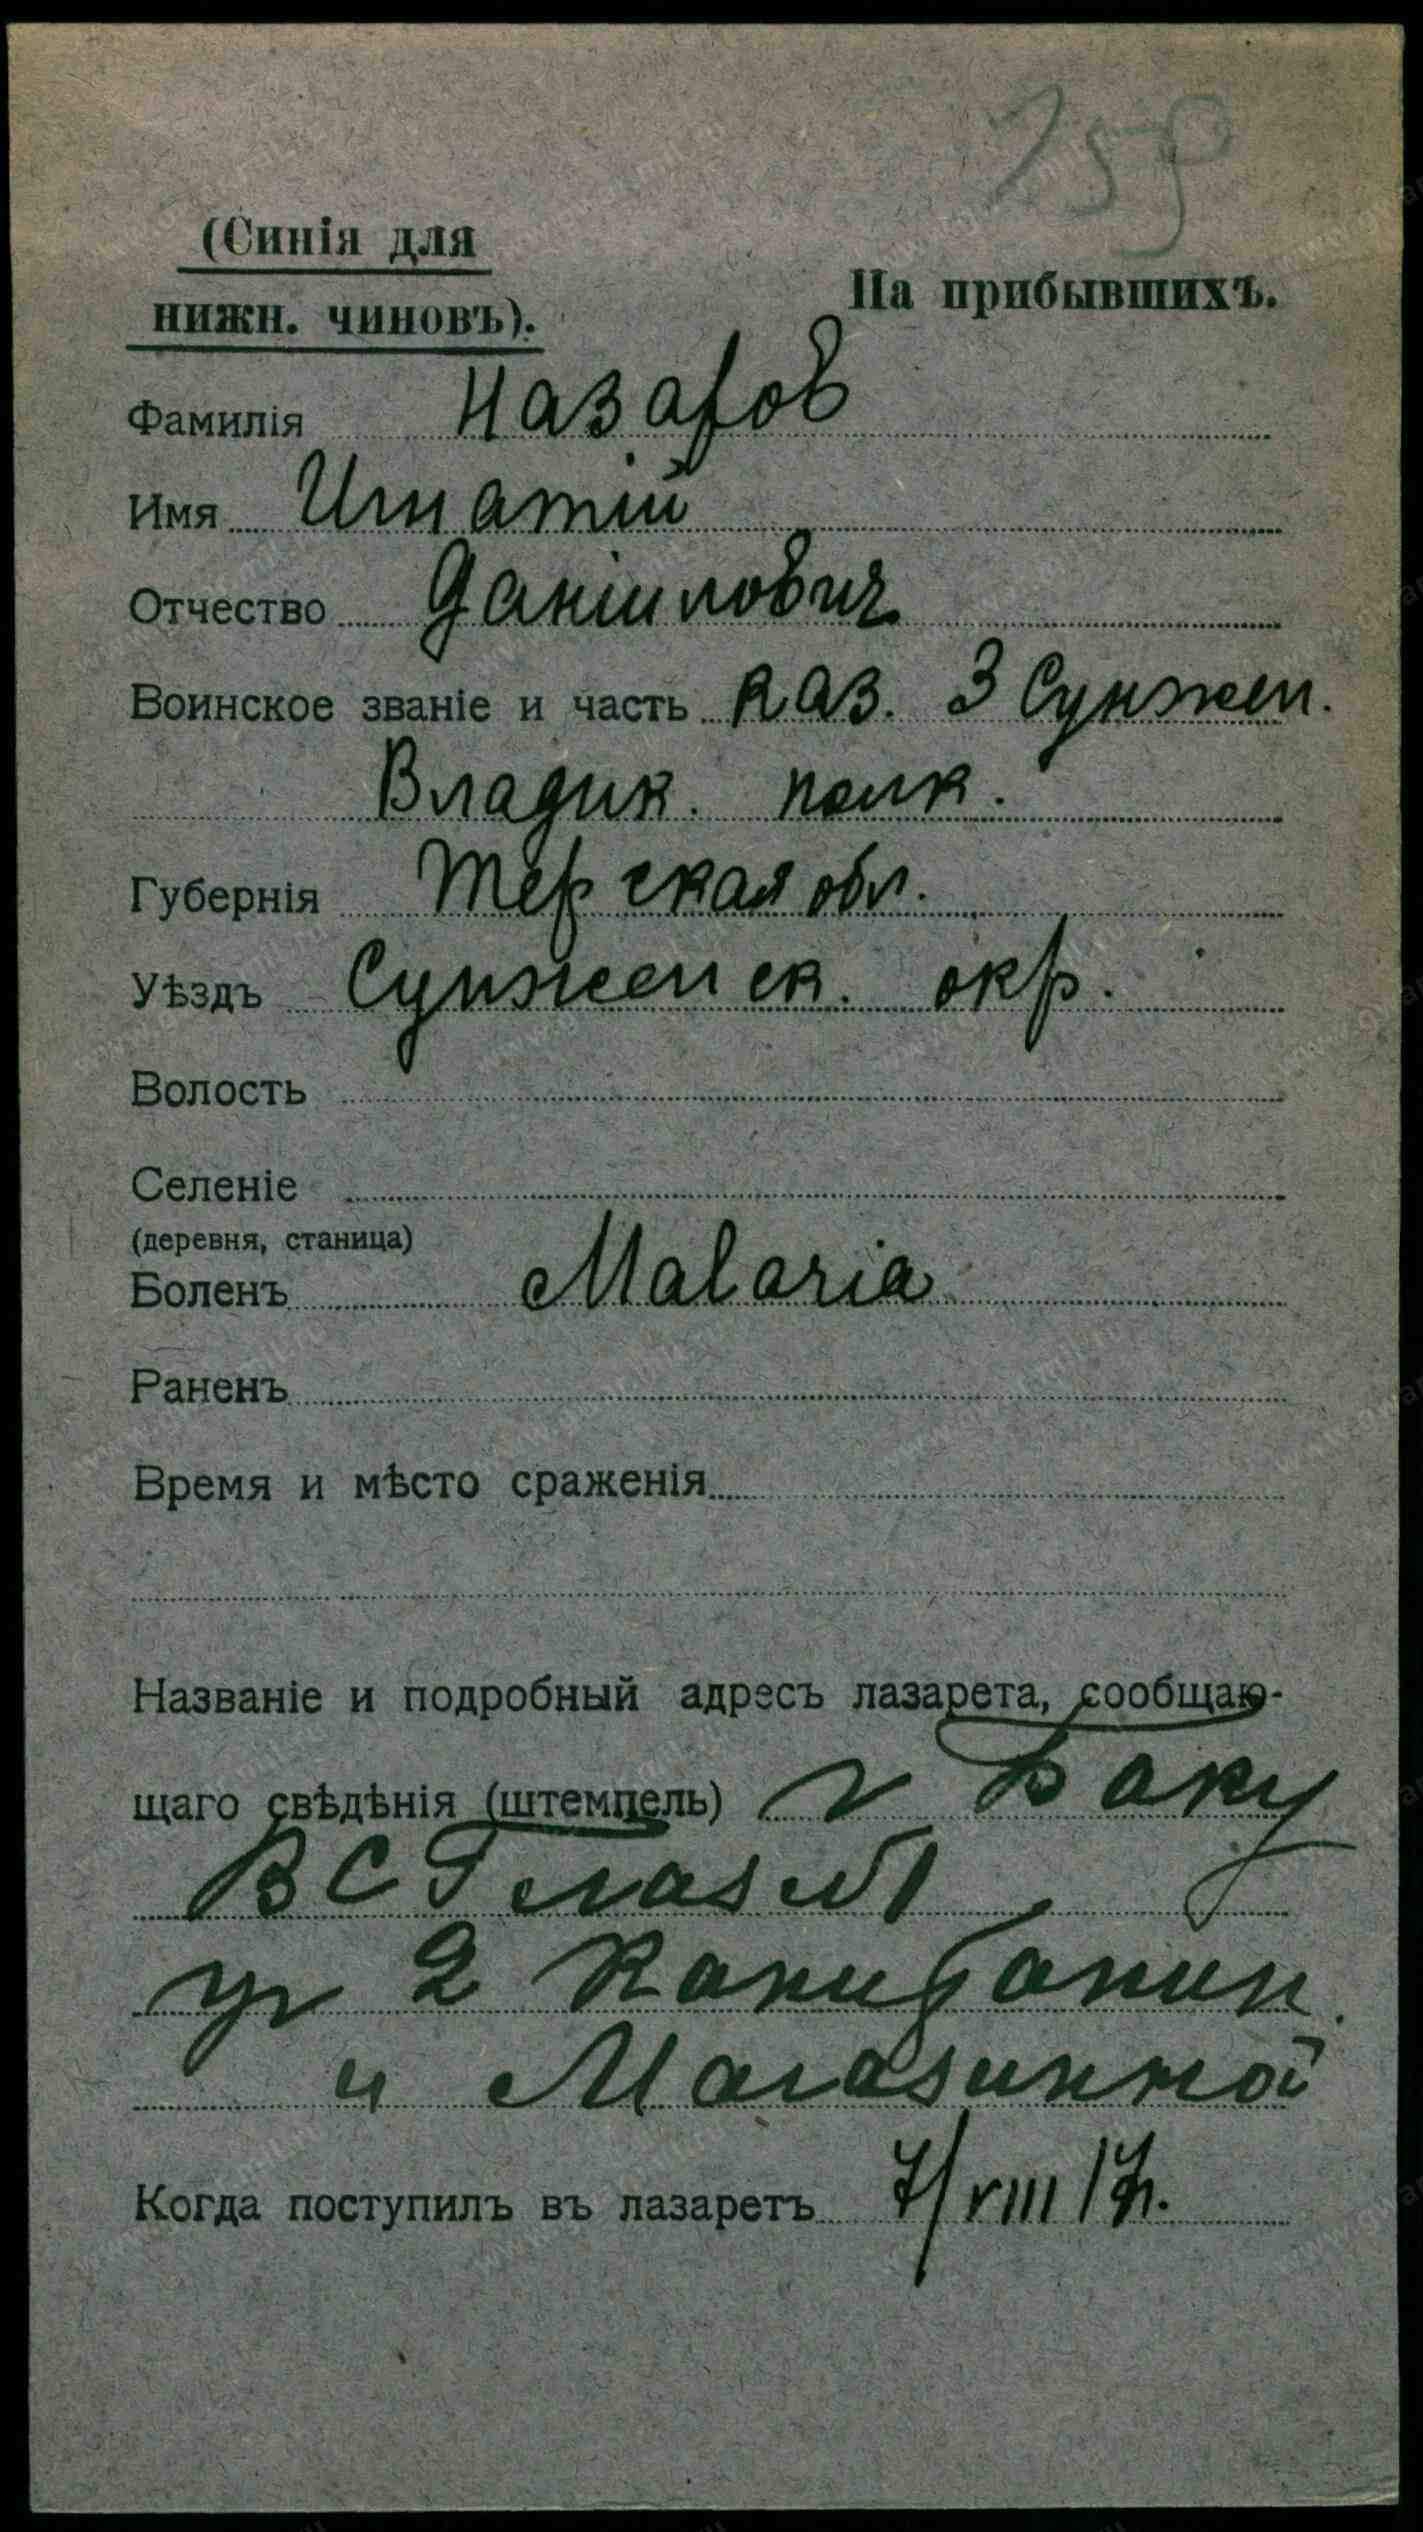 (Синія для
нижн. чиновъ).
На прибывшихъ.
Фамилія Назаров
Имя Игнатій
Отчество Даніилович
Воинское званіе и часть каз. 3 Сунжен.
Владик. полк.
Губернія Терская обл.
Уѣздъ Сунженск. окр.
Волость
Селеніе
(деревня, станица)
Боленъ Malaria
Раненъ
Время и мѣсто сраженія
Названіе и подробный адресъ лазарета, сообщаю-
щаго свѣдѣнія (штемпель) г Баку
ВСГ лаз №1
уг 2 Канитапин
и Магазинной
Когда поступилъ въ лазаретъ 7/VIII 17г.